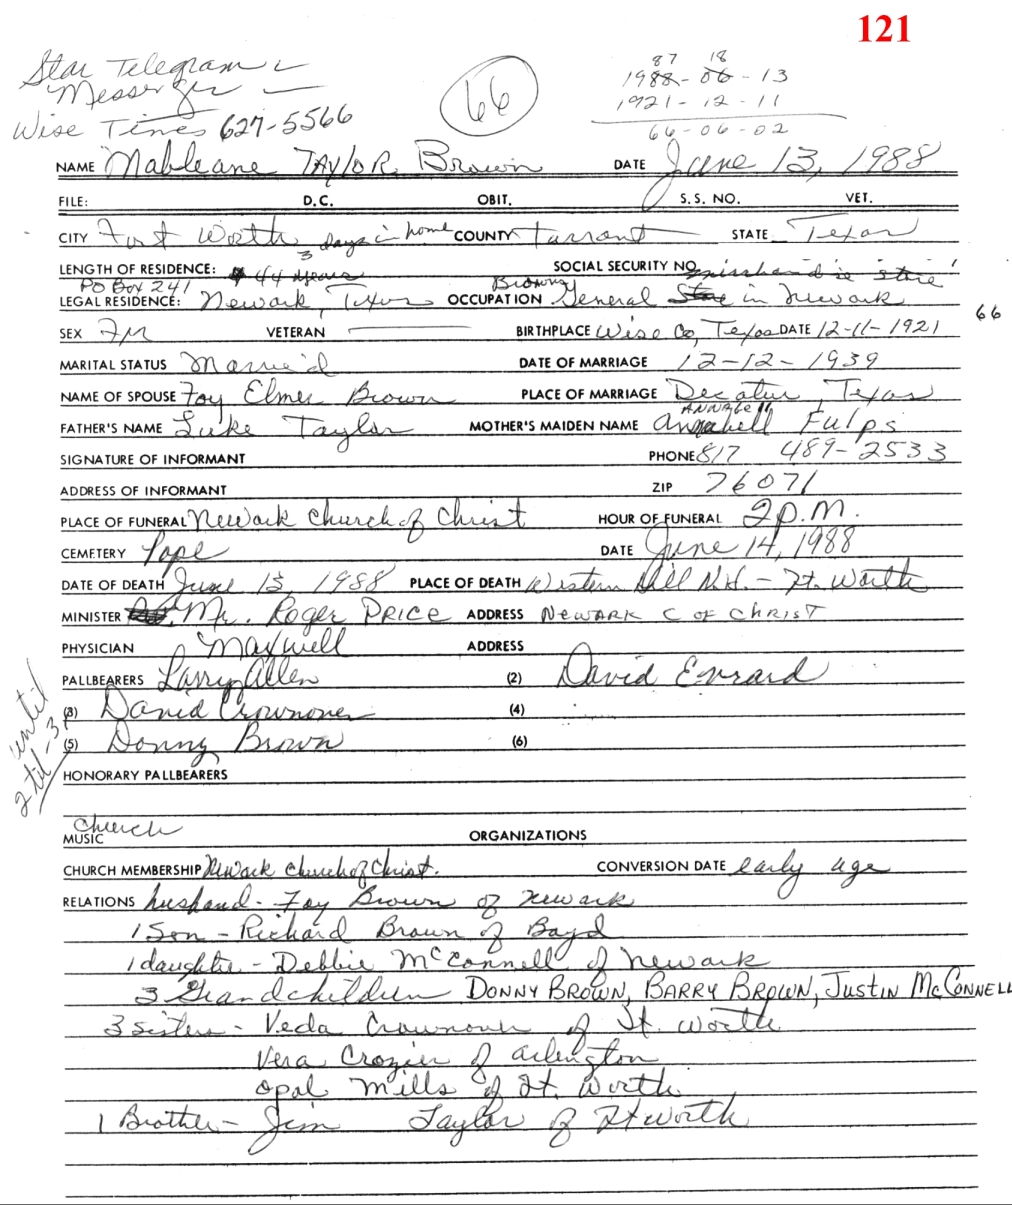 121
Star Telegram
Messenger
Wise Times 627-5566
66
87 18
1988-06-13
1921-12-11
66-06-02
NAME Mableane TAYLOR Brown DATE June 13, 1988
FILE: D.C. OBIT. S.S. NO. VET.
CITY Fort Worth 3 days in home COUNTY Tarrant STATE Texas
LENGTH OF RESIDENCE: 44 years SOCIAL SECURITY NO.
PO Box 241
LEGAL RESIDENCE: Newark, Texas OCCUPATION Browns General Store in Newark
66
SEX Fm VETERAN BIRTHPLACE Wise Co, Texas DATE 12-11-1921
MARITAL STATUS Married DATE OF MARRIAGE 12-12-1939
NAME OF SPOUSE Foy Elmer Brown PLACE OF MARRIAGE Decatur, Texas
ANNABELL
FATHER'S NAME Luke Taylor MOTHER'S MAIDEN NAME Annabell Fulps
SIGNATURE OF INFORMANT PHONE 817 489-2533
ADDRESS OF INFORMANT ZIP 76071
PLACE OF FUNERAL Newark Church of Christ HOUR OF FUNERAL 2 p.m.
CEMETERY Pope DATE June 14, 1988
DATE OF DEATH June 13, 1988 PLACE OF DEATH Western Hill N.H. - Ft. Worth
MINISTER Mr. Roger PRICE ADDRESS NEWARK C OF CHRIST
PHYSICIAN Maxwell ADDRESS
PALLBEARERS Larry Allen (2) David Enrard
(3) David Crownover (4)
until
2 til - 3
(5) Donny Brown (6)
HONORARY PALLBEARERS
MUSIC Church ORGANIZATIONS
CHURCH MEMBERSHIP Newark Church of Christ. CONVERSION DATE early age
RELATIONS husband - Foy Brown of Newark
1 Son - Richard Brown of Boyd
1 daughter - Debbie McConnell of Newark
3 Grandchildren DONNY BROWN, BARRY BROWN, JUSTIN McCONNELL
3 sisters - Veda Crownover of Ft. Worth
Vera Crozier of Arlington
Opal Mills of Ft. Worth
1 Brother - Jim Taylor of Ft Worth